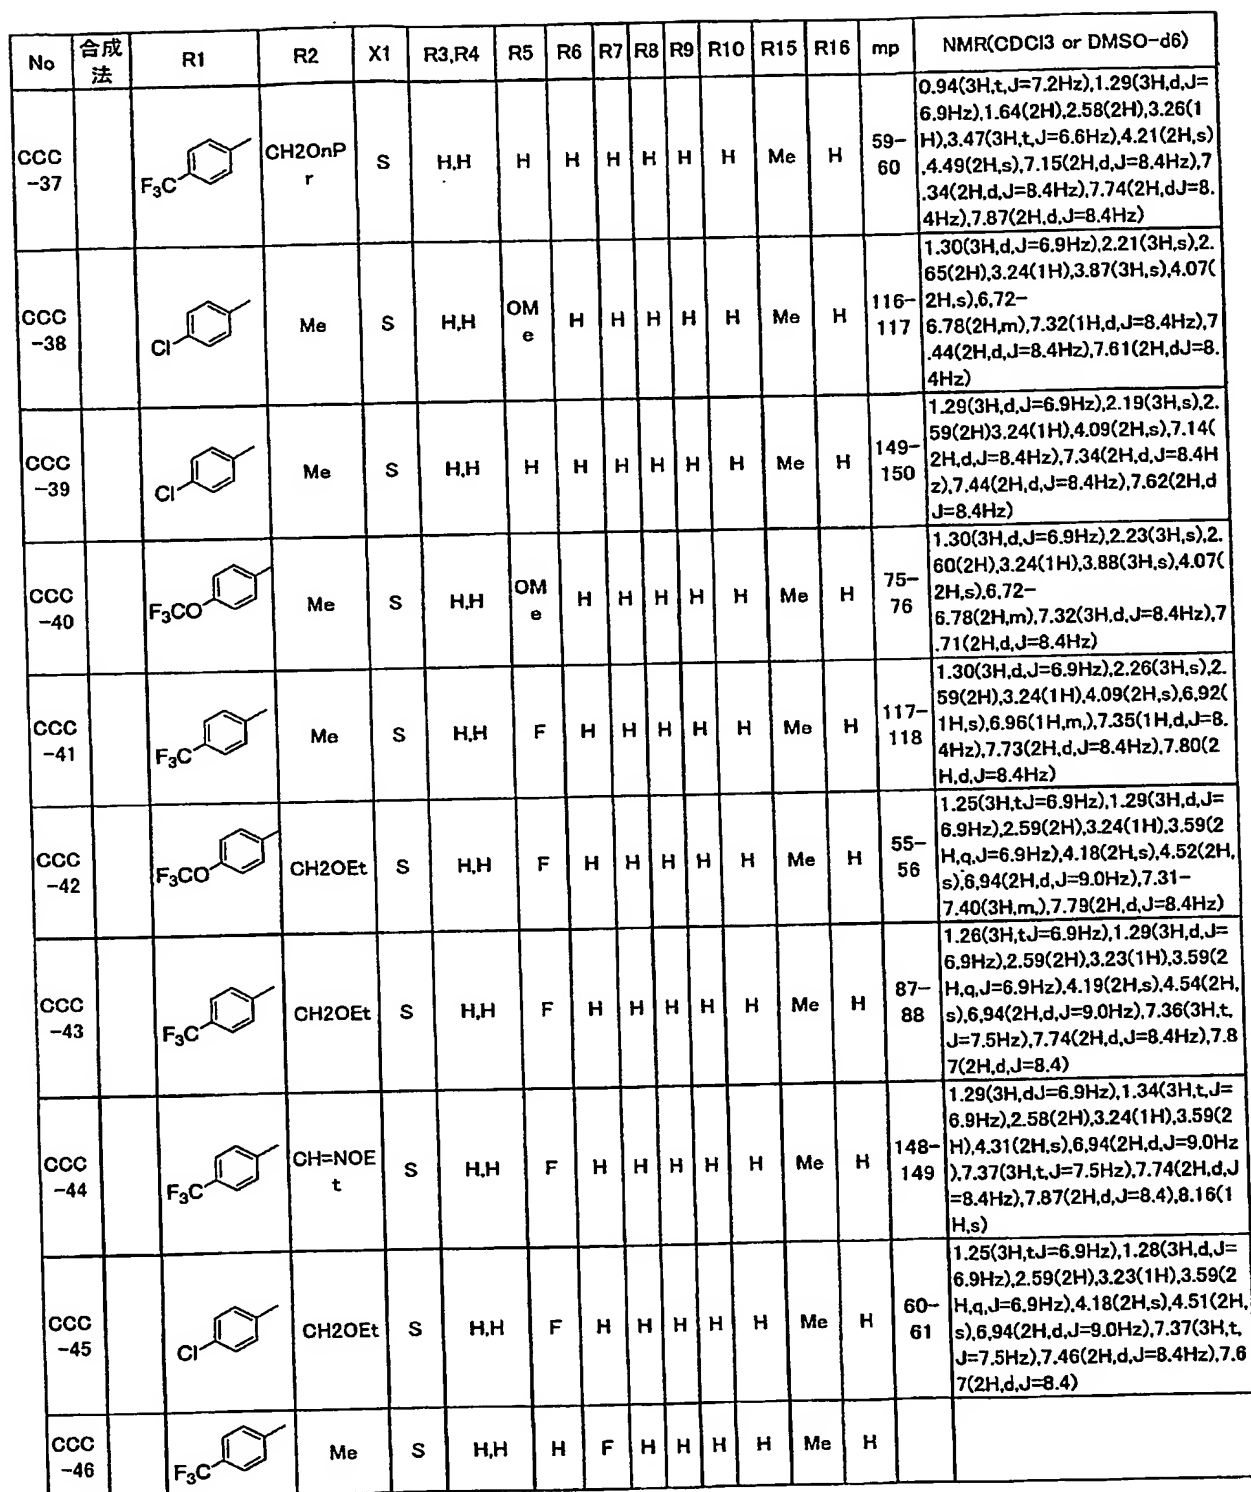 No 合成法 R1 R2 X1 R3,R4 R5 R6 R7 R8 R9 R10 R15 R16 mp NMR(CDCl3 or DMSO-d6)
CCC-37 F3C CH2OnPr S H,H H H H H H H Me H 59-60
0.94(3H,t,J=7.2Hz),1.29(3H,d,J=
6.9Hz),1.64(2H),2.58(2H),3.26(1
H),3.47(3H,t,J=6.6Hz),4.21(2H,s)
,4.49(2H,s),7.15(2H,d,J=8.4Hz),7
.34(2H,d,J=8.4Hz),7.74(2H,dJ=8.
4Hz),7.87(2H,d,J=8.4Hz)
CCC-38 Cl Me S H,H OMe H H H H H Me H 116-117
1.30(3H,d,J=6.9Hz),2.21(3H,s),2.
65(2H),3.24(1H),3.87(3H,s),4.07(
2H,s),6,72-
6.78(2H,m),7.32(1H,d,J=8.4Hz),7
.44(2H,d,J=8.4Hz),7.61(2H,dJ=8.
4Hz)
CCC-39 Cl Me S H,H H H H H H H Me H 149-150
1.29(3H,d,J=6.9Hz),2.19(3H,s),2.
59(2H)3.24(1H),4.09(2H,s),7.14(
2H,d,J=8.4Hz),7.34(2H,d,J=8.4H
z),7.44(2H,d,J=8.4Hz),7.62(2H,d
J=8.4Hz)
CCC-40 F3CO Me S H,H OMe H H H H H Me H 75-76
1.30(3H,d,J=6.9Hz),2.23(3H,s),2.
60(2H),3.24(1H),3.88(3H,s),4.07(
2H,s),6,72-
6.78(2H,m),7.32(3H,d,J=8.4Hz),7
.71(2H,d,J=8.4Hz)
CCC-41 F3C Me S H,H F H H H H H Me H 117-118
1.30(3H,d,J=6.9Hz),2.26(3H,s),2.
59(2H),3.24(1H),4.09(2H,s),6,92(
1H,s),6.96(1H,m,),7.35(1H,d,J=8.
4Hz),7.73(2H,d,J=8.4Hz),7.80(2
H,d,J=8.4Hz)
CCC-42 F3CO CH2OEt S H,H F H H H H H Me H 55-56
1.25(3H,tJ=6.9Hz),1.29(3H,d,J=
6.9Hz),2.59(2H),3.24(1H),3.59(2
H,q,J=6.9Hz),4.18(2H,s),4.52(2H,
s),6,94(2H,d,J=9.0Hz),7.31-
7.40(3H,m,),7.79(2H,d,J=8.4Hz)
CCC-43 F3C CH2OEt S H,H F H H H H H Me H 87-88
1.26(3H,tJ=6.9Hz),1.29(3H,d,J=
6.9Hz),2.59(2H),3.23(1H),3.59(2
H,q,J=6.9Hz),4.19(2H,s),4.54(2H,
s),6,94(2H,d,J=9.0Hz),7.36(3H,t,
J=7.5Hz),7.74(2H,d,J=8.4Hz),7.8
7(2H,d,J=8.4)
CCC-44 F3C CH=NOEt S H,H F H H H H H Me H 148-149
1.29(3H,dJ=6.9Hz),1.34(3H,t,J=
6.9Hz),2.58(2H),3.24(1H),3.59(2
H),4.31(2H,s),6,94(2H,d,J=9.0Hz
),7.37(3H,t,J=7.5Hz),7.74(2H,d,J
=8.4Hz),7.87(2H,d,J=8.4),8.16(1
H,s)
CCC-45 Cl CH2OEt S H,H F H H H H H Me H 60-61
1.25(3H,tJ=6.9Hz),1.28(3H,d,J=
6.9Hz),2.59(2H),3.23(1H),3.59(2
H,q,J=6.9Hz),4.18(2H,s),4.51(2H,
s),6,94(2H,d,J=9.0Hz),7.37(3H,t,
J=7.5Hz),7.46(2H,d,J=8.4Hz),7.6
7(2H,d,J=8.4)
CCC-46 F3C Me S H,H H F H H H H Me H